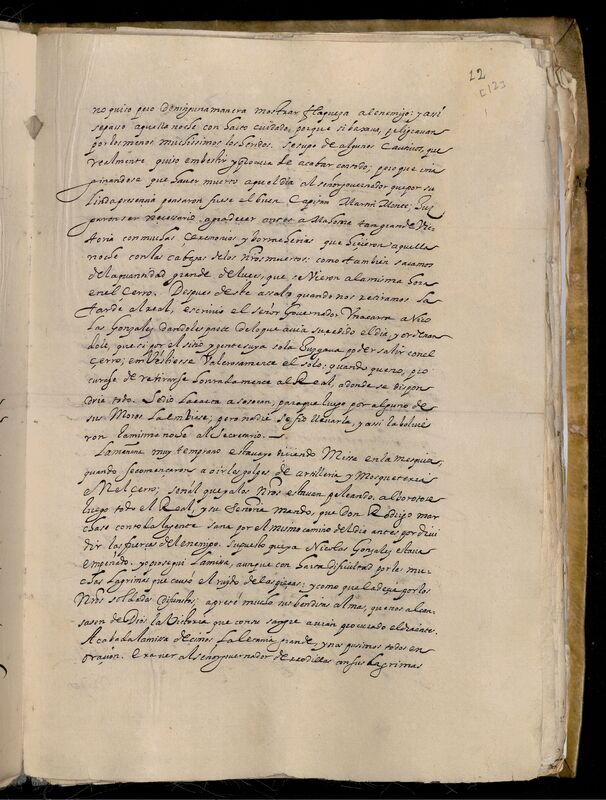 12
[12]
no quiso pero de ninguna manera mostrar flaqueza al enemigo; y así
se paso aquella noche con harto cuidado, porque si baxaua, peligrauan
por los menos muchissimos los heridos. se supo de algunos cautiuos, que
realmente quiso embestir y procura de acabar con todo; pero que ima
ginandose que hauer muerto aquel día al señor gouernador que por su
linda presencia pensaron fuese el buen Capitan Martin Monte; Juz
garon ser necesario, agradecer antes a Mahoma tan grande Vic
toria con muchas ceremonias y borracherias que hizieron aquella
noche con las cabezas de los nros muertos: como tambien sacamos
de la quantidad grande de luces, que se vieron a la misma hora
en el Cerro. Despues deste assalto quando nos retiramos la
tarde al real, escriuio el señor Gouernador Vna carta a Nico
las Gonzalez dandole parte de lo que auia sucedido el dia, y ordenan
dole, que si por el sitio y gente suya sola Juzgaua poder salir con el
cerro; embistiesse Valerosamente el solo: quando que no, pro
curase de retirarse honradamente al Real, adonde se dispon
dria todo. Se dio la carta a Sosocan, para que luego por alguno de
sus Moros la embiase; pero nadie se fio lleuarla, y assi la boluie
ron la misma noche al secretario.
La mañana muy temprano estauase diciendo Missa en la mesquita,
quando se comenzaron a oir los golpes de artilleria y Mosqueteria
en el Cerro; señal que ya los nros estauan peleando. alborotose
luego todo el Real, y su Señoria mando, que Don Rodrigo mar
chase con toda la gente sana por el mismo camino del dia antes por diui
dir las fuerzas del enemigo. Supuesto que ya Nicolas Gonzalez estaua
empeñado. yo prosegui la missa, aunque con harta dificultad por las mu
chas lagrimas que causo el ruido de las piezas: y como que la dezia por los
nros soldados difuntos; aprete mucho sus benditas almas, que nos alcan
sasen de Dios la Victoria que con su sangre auian procurado el dia antes.
Acabada la missa decimos la letania grande, y nos pusimos todos en
oracion. Era ver al señor gouernador de rodillas con sus lagrimas